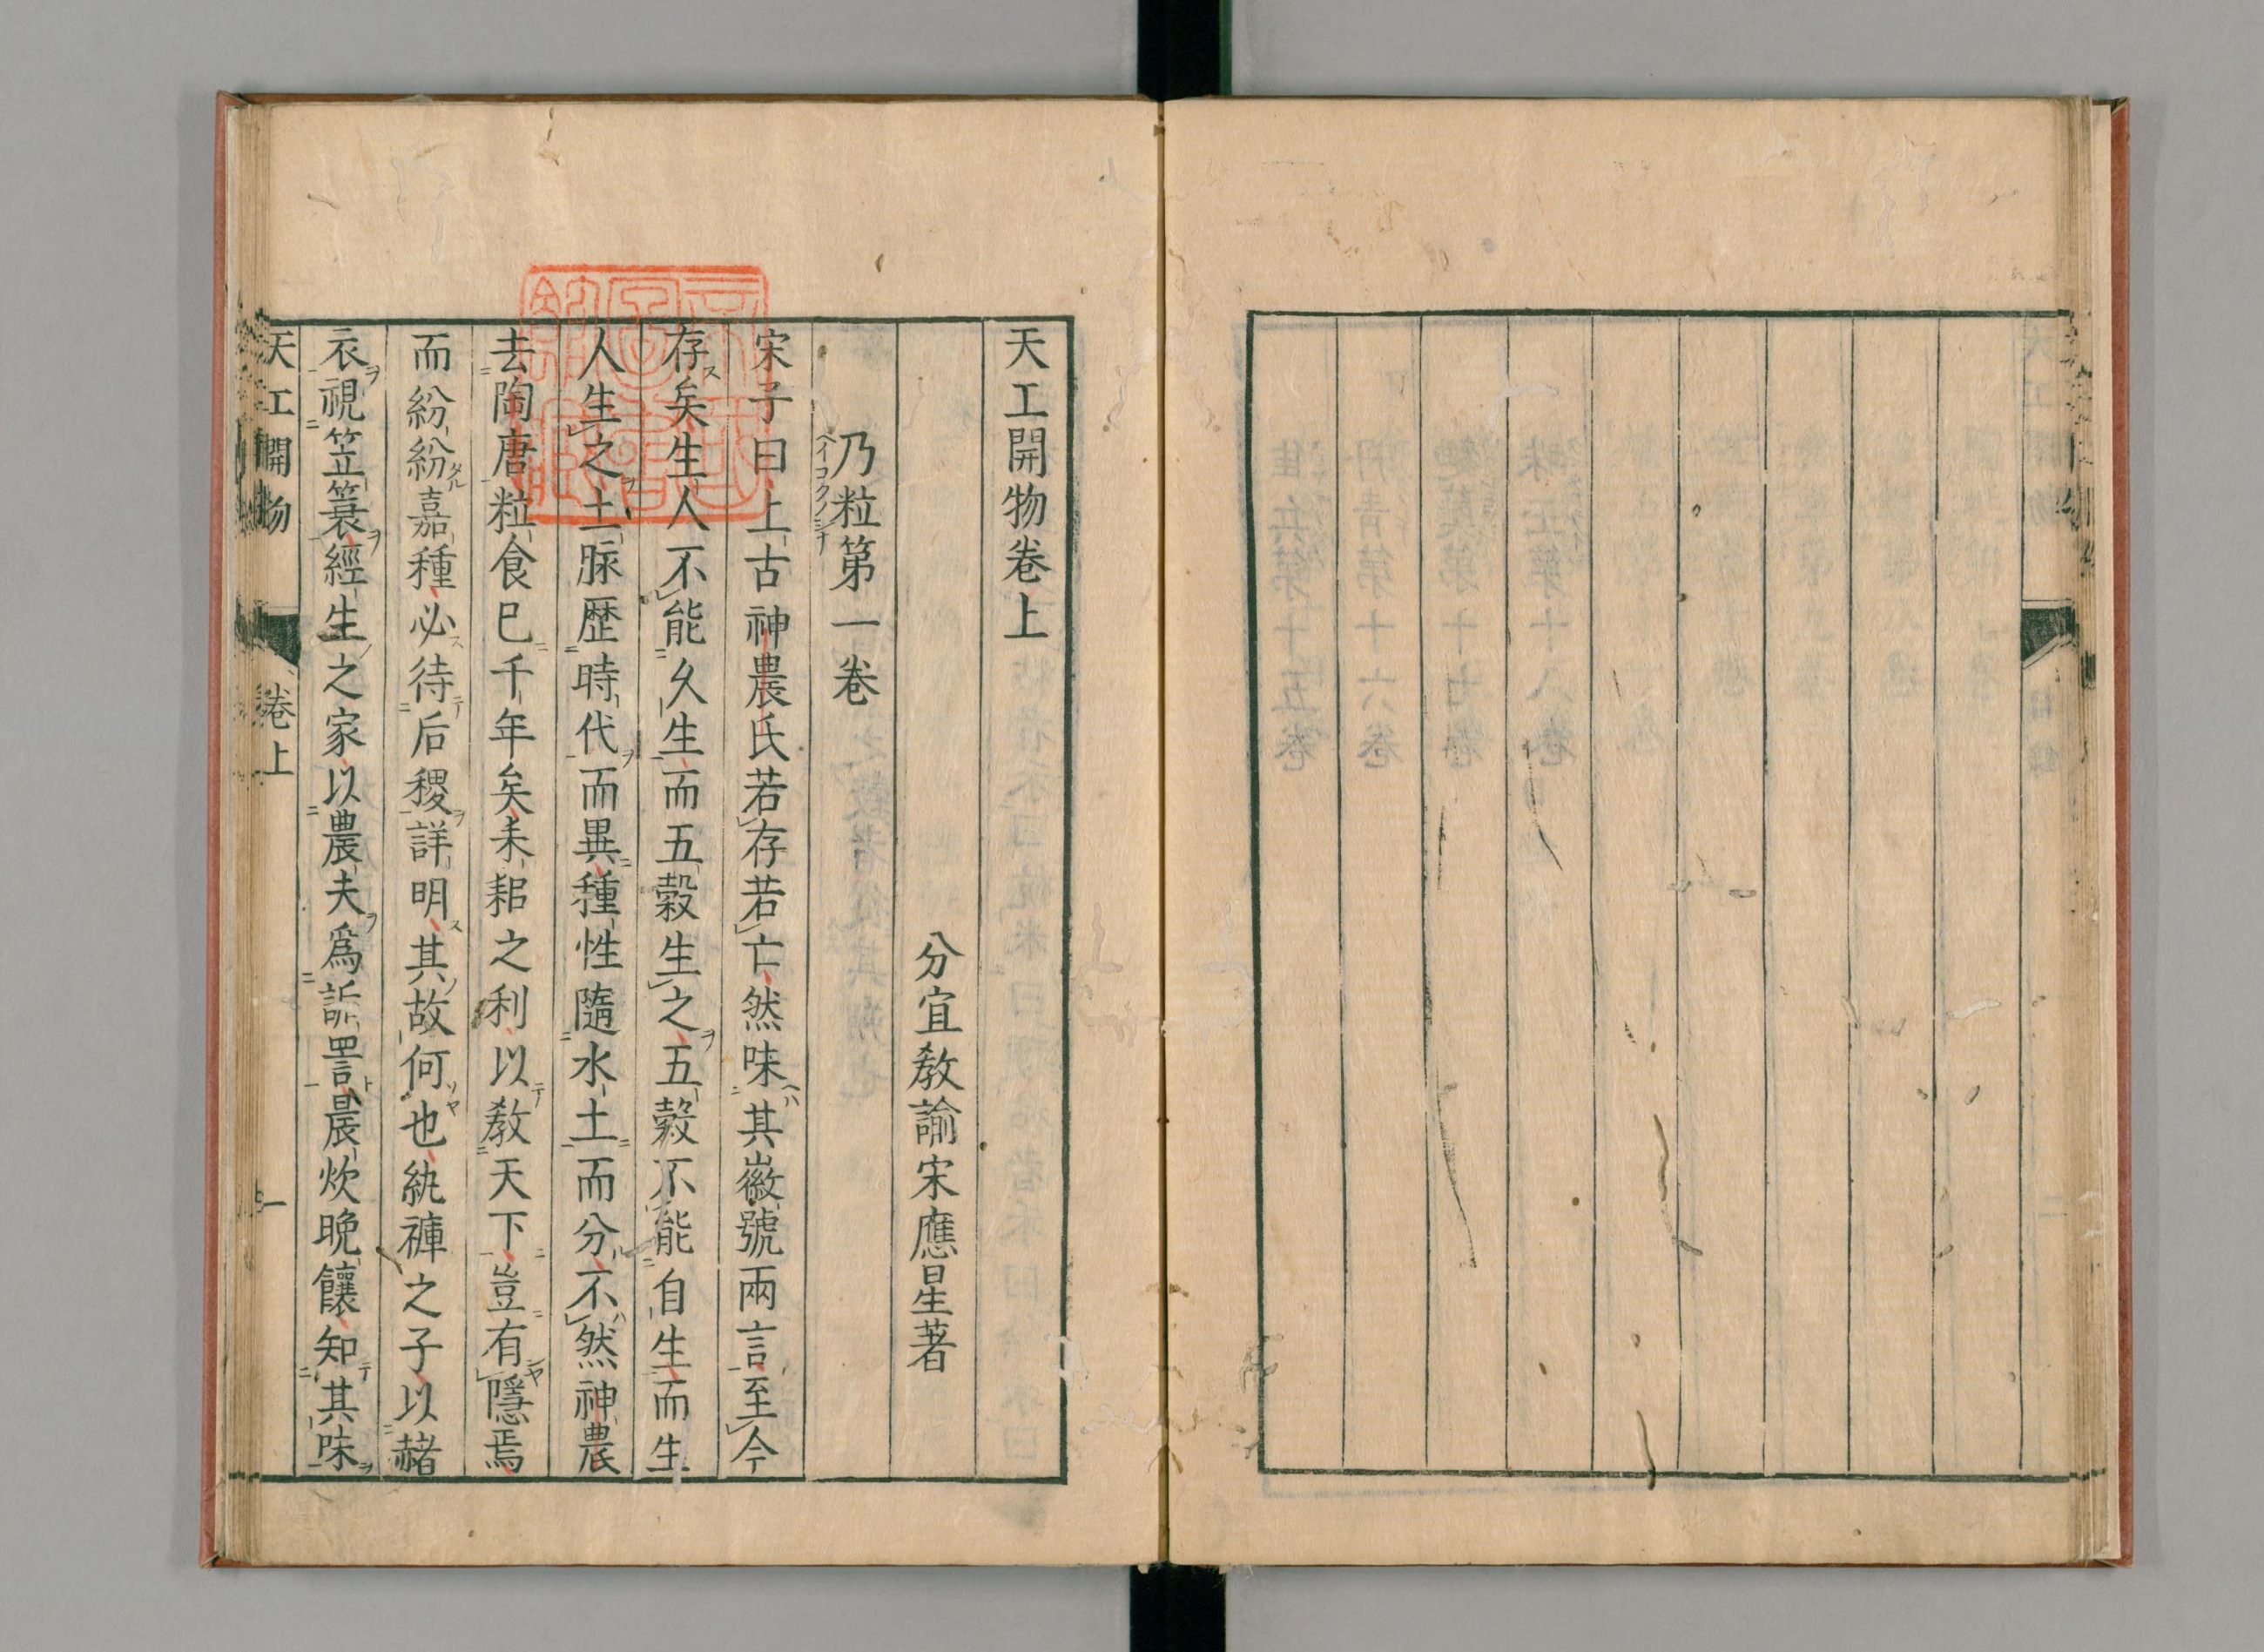 天工開物卷上
分宜教諭宋應星著
乃粒第一卷
ベイコクノシナ
宋子曰上古神農氏若存若亡然味其徽號兩言至今
存矣生人不能久生而五穀生之五穀不能自生而生
人生之土脉歴時代而異種性隨水土而分不然神農
去陶唐粒食已千年矣耒耜之利以教天下豈有隱焉
而紛紛嘉種必待后稷詳明其故何也紈褲之子以赭
衣視笠簑經生之家以農夫爲詬詈晨炊晚饟知其味
天工開物 卷上 一